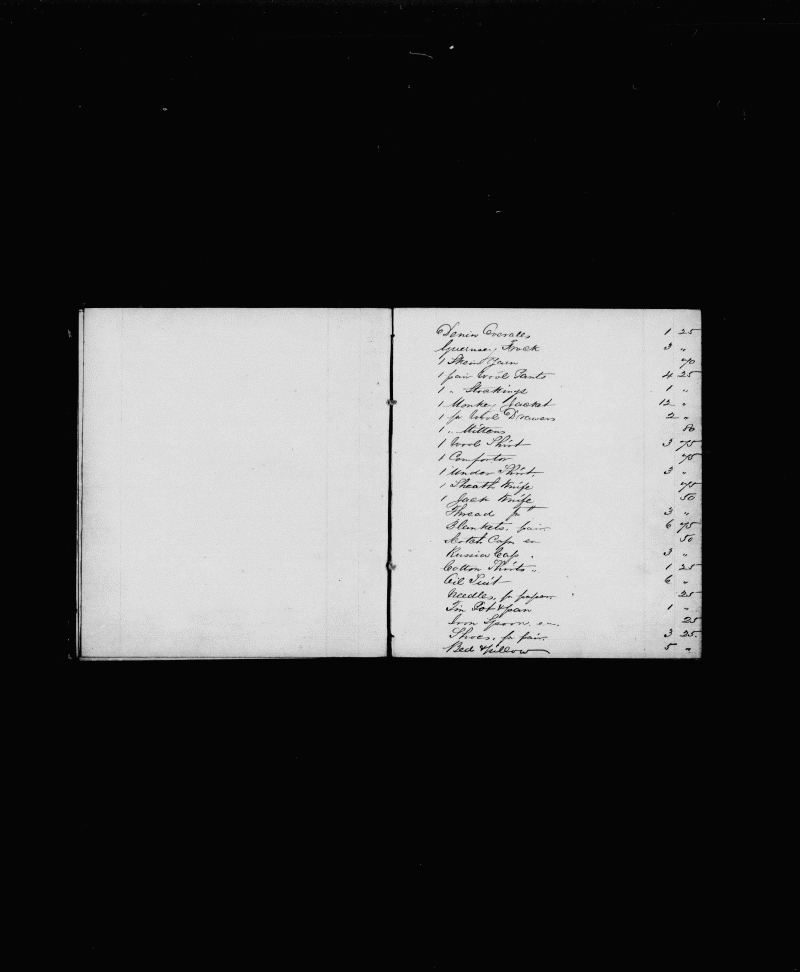 Denim Overalls 1 25
Guernsey Frock 3 "
1 Skein Yarn 70
1 pair Wool Pants 4 25
1 " Stockings 1 "
1 Monkey Jacket 12 "
1 pr Wool Drawers 2 "
1 " Mittens 80
1 Wool Shirt 3 75
1 Comfortor 75
1 Under Shirt. 3 "
1 Sheath Knife 75
1 Jack Knife 50
Thread 3 "
Blankets, pair 6 75
Scotch Cap ea 50
Russia Cap " 3 "
Cotton Shirts " 1 25
Oil Suit 6 "
Needles, pr paper 25
Tin Pot & pan 1 "
Iron Spoon, ea. 25
Shoes, pr pair 3 25
Bed & pillow 5 "